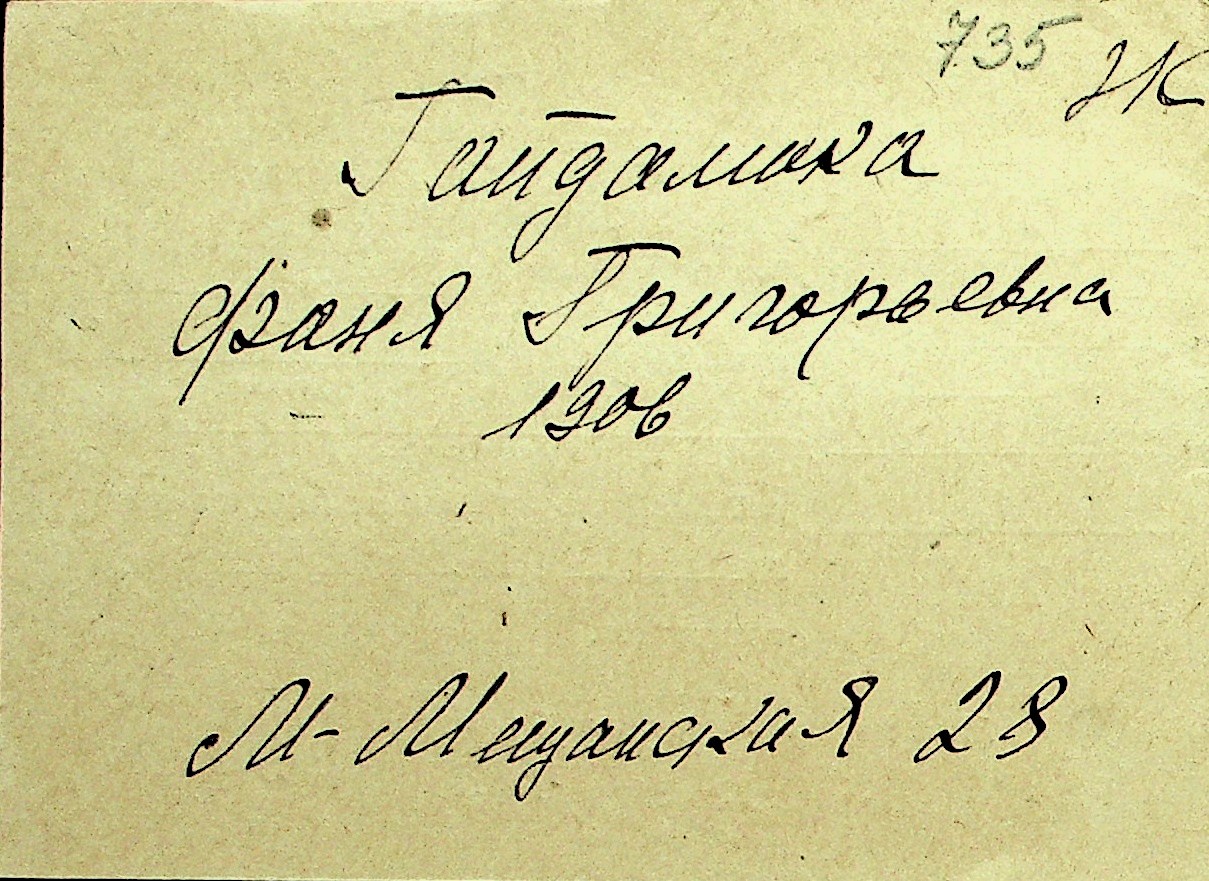 735 НК
Гайдамака
Фаня Григорьевна
1906
М-Мещанская 28